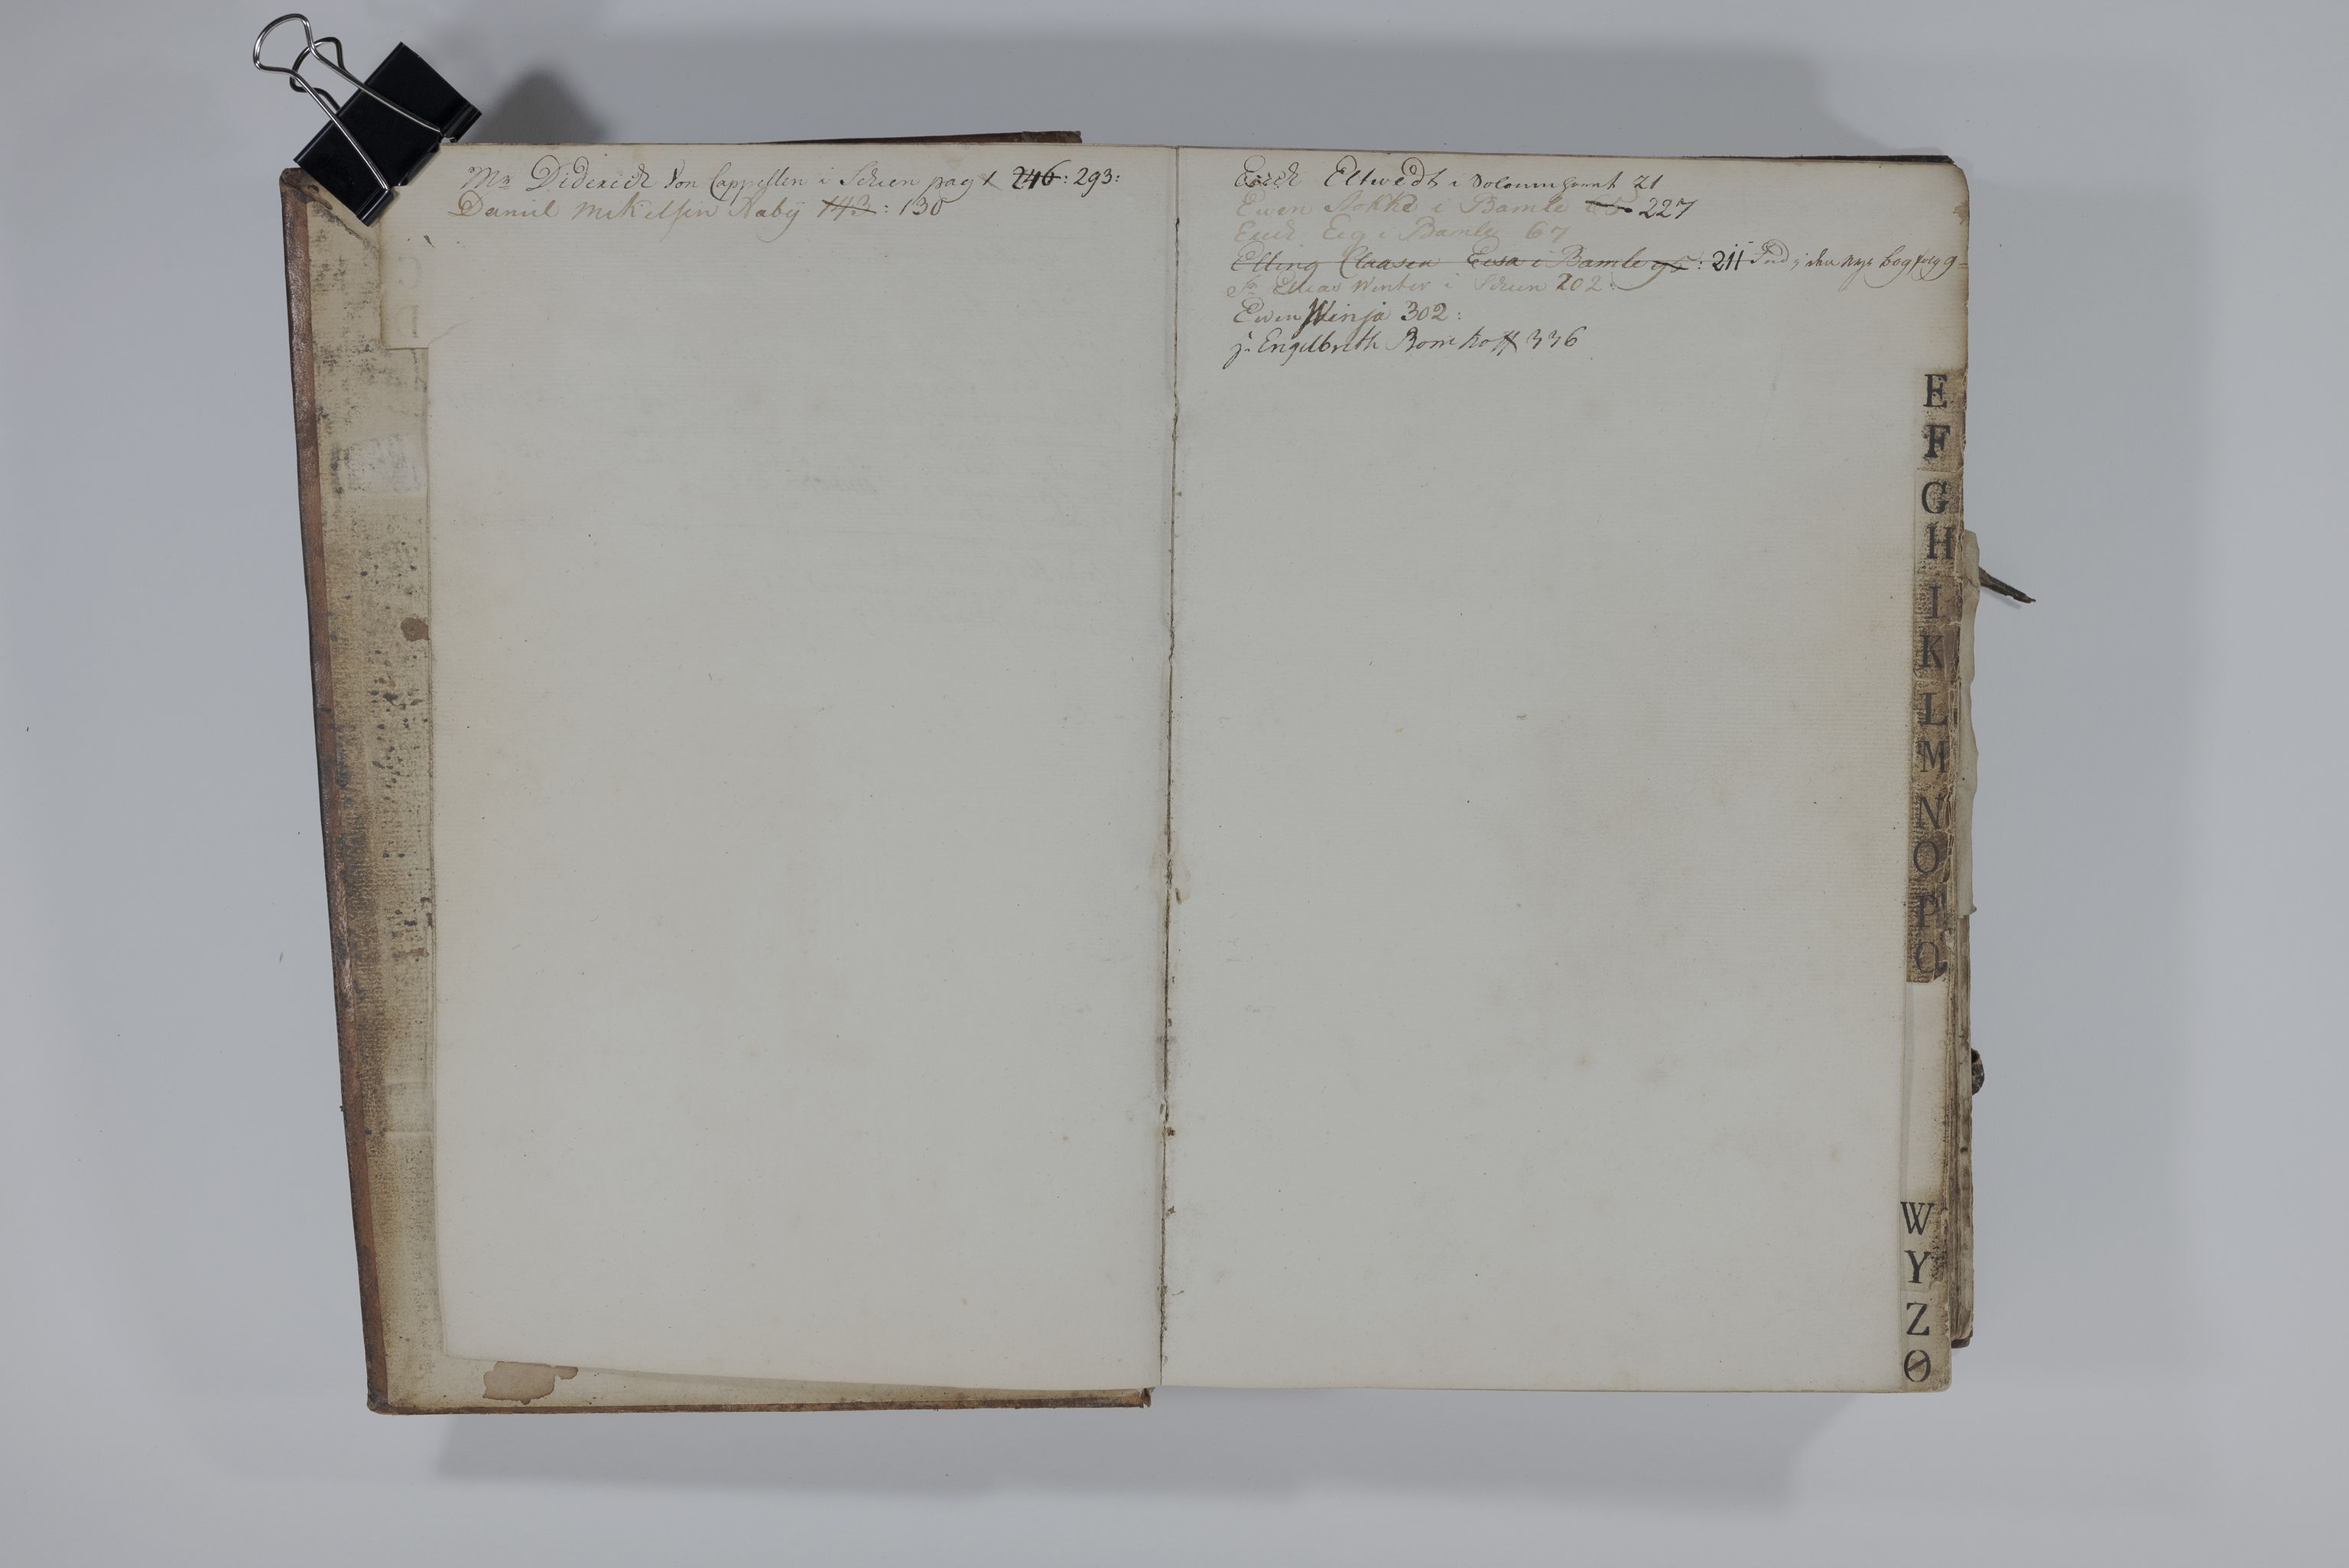 Mr Diderich Von Cappellen i Schien pag 1 246: 293:
Daniel Mikelsen Aaby 143: 130
Erich Eltwedt i Soloumsount 21
Ewen Stokke i Bamle 65 227
Erich Eeg i Bamle 67
Elling Claasen Eesa i Bamle 95: 211 Ind i den nye bog folg 9
Sr Elias Winter i Schien 202:
Ewen Winja 302:
Engelbreth Bomhoff 336
E
F
G
H
I
K
L
M
N
O
P
Q
W
Y
Z
Ø